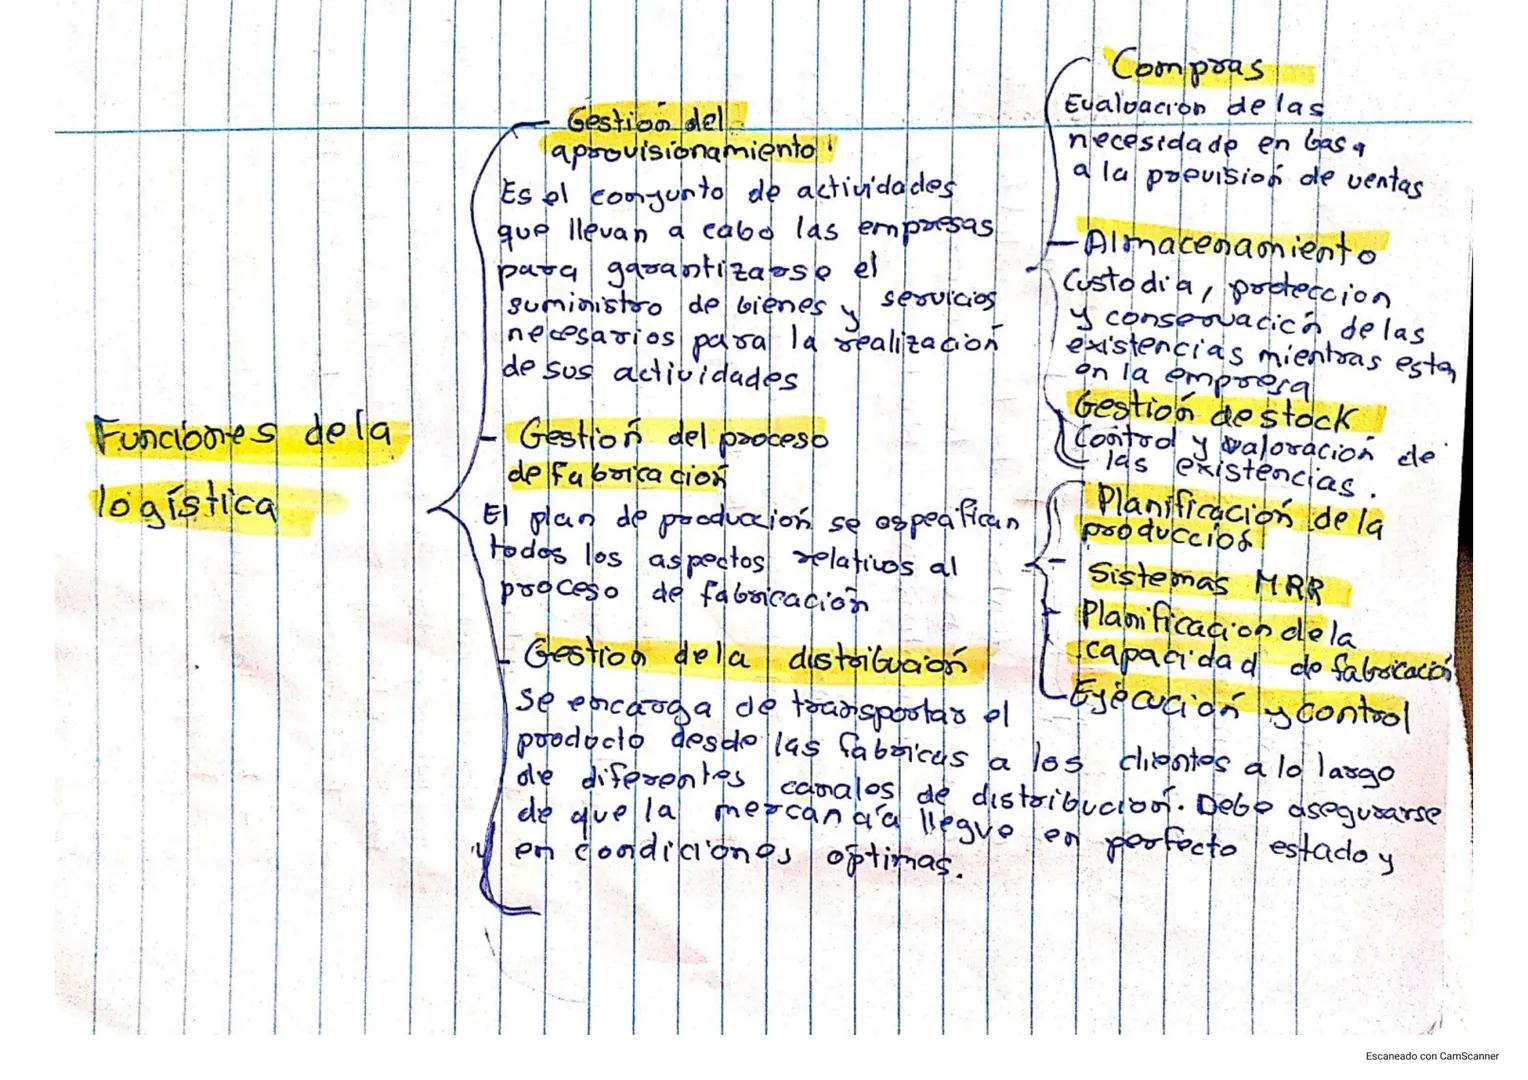 Funciones de la
logística
Gestión del
aprovisionamiento
Es el conjunto de actividades
que llevan a cabo las empresas
para garantizarse el
suministro de bienes y servicios
necesarios para la realización
de sus actividades
Compras
Evaluación de las
necesidade en basa
a la previsión de ventas
- Almacenamiento
Custodia, proteccion
y conservación de las
existencias mientras esta
en la empresa
Gestión de stock
Control y valoración de
las existencias.
- Gestión del proceso
de fabricación
El plan de producción se especifican
todos los aspectos relativos al
proceso de fabricación
Planificación de la
producción
- Sistemas MRR
- Planificacion de la
capacidad de fabricación
- Ejecución y control
- Gestion de la distribución
Se encarga de transportar el
producto desde las fabricas a los clientes a lo largo
de diferentes canales de distribución. Debe asegurarse
de que la mercancía llegue en perfecto estado y
en condiciones óptimas.
Escaneado con CamScanner